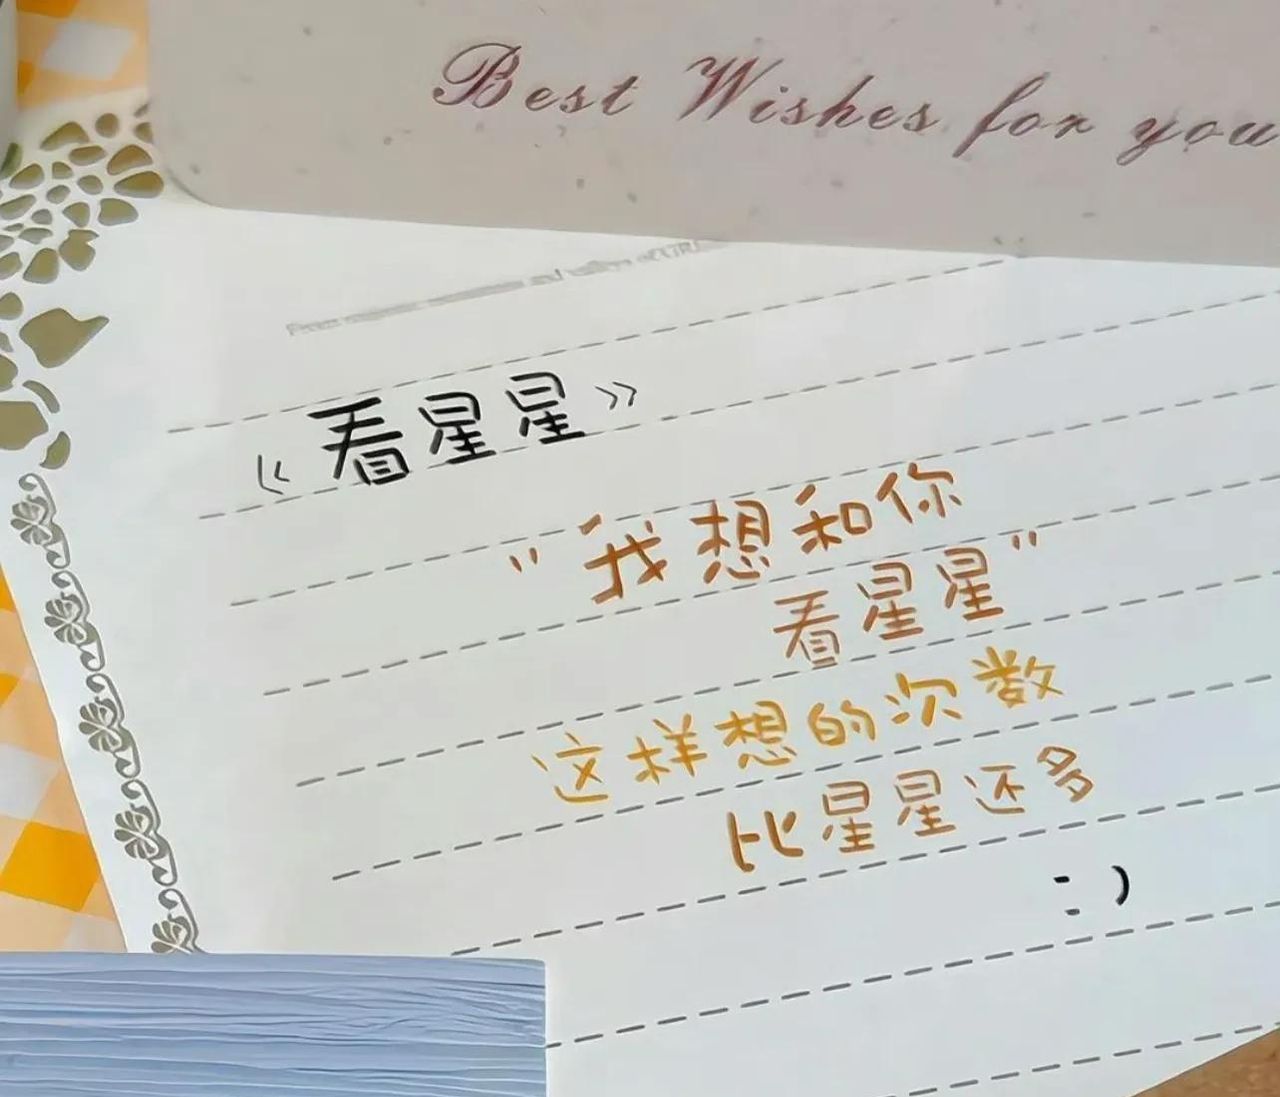 Best Wishes for you
《看星星》
“我想和你
看星星”
这样想的次数
比星星还多
:)